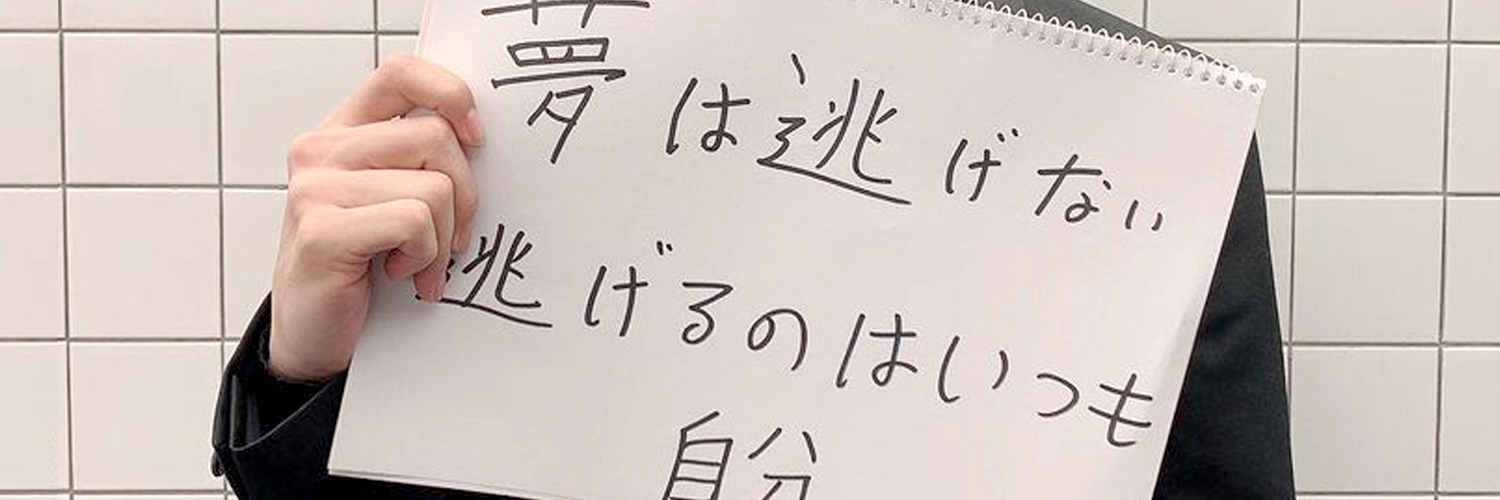 夢は逃げない
逃げるのはいつも
自分